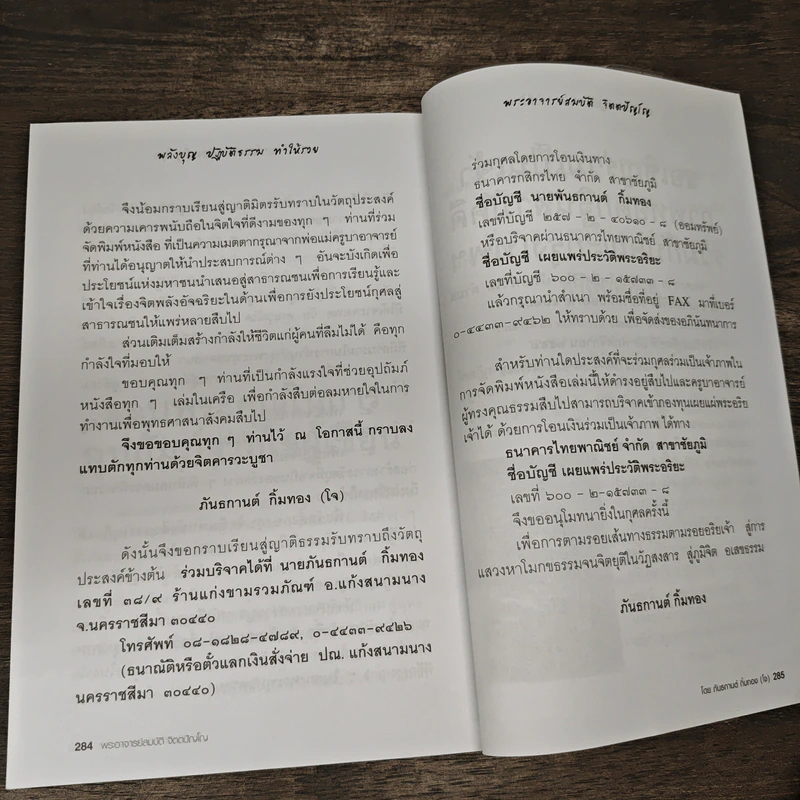 พลังบุญ ปฏิบัติธรรม ทำให้รวย
จึงน้อมกราบเรียนสู่ญาติมิตรรับทราบในวัตถุประสงค์
ด้วยความเคารพนับถือในจิตใจที่ดีงามของทุก ๆ ท่านที่ร่วม
จัดพิมพ์หนังสือ ที่เป็นความเมตตากรุณาจากพ่อแม่ครูบาอาจารย์
ที่ท่านได้อนุญาตให้นำประสบการณ์ต่าง ๆ อันจะบังเกิดเพื่อ
ประโยชน์แห่งมหาชนนำเสนอสู่สาธารณชนเพื่อการเรียนรู้และ
เข้าใจเรื่องจิตพลังอัจฉริยะในด้านเพื่อการยังประโยชน์กุศลสู่
สาธารณชนให้แพร่หลายสืบไป
ส่วนเติมเต็มสร้างกำลังให้ชีวิตแก่ผู้คนที่ลืมไม่ได้ คือทุก
กำลังใจที่มอบให้
ขอบคุณทุก ๆ ท่านที่เป็นกำลังแรงใจที่ช่วยอุปถัมภ์
หนังสือทุก ๆ เล่มในเครือ เพื่อกำลังสืบต่อลมหายใจในการ
ทำงานเพื่อพุทธศาสนาสังคมสืบไป
จึงขอขอบคุณทุก ๆ ท่านไว้ ณ โอกาสนี้ กราบลง
แทบตักทุกท่านด้วยจิตคารวะบูชา
ภันธกานต์ กิ้มทอง (โจ)
ดังนั้นจึงขอกราบเรียนสู่ญาติธรรมรับทราบถึงวัตถุ
ประสงค์ข้างต้น ร่วมบริจาคได้ที่ นายภันธกานต์ กิ้มทอง
เลขที่ ๓๘/๙ ร้านแก่งขามรวมภัณฑ์ อ.แก้งสนามนาง
จ.นครราชสีมา ๓๐๔๔๐
โทรศัพท์ ๐๘-๑๘๒๘-๔๗๘๙, ๐-๔๔๓๓-๙๔๒๖
(ธนาณัติหรือตั๋วแลกเงินสั่งจ่าย ปณ. แก้งสนามนาง
นครราชสีมา ๓๐๔๔๐)
284 พระอาจารย์สมบัติ จิตตปัญโญ
พระอาจารย์สมบัติ จิตตปัญโญ
ร่วมกุศลโดยการโอนเงินทาง
ธนาคารกสิกรไทย จำกัด สาขาชัยภูมิ
ชื่อบัญชี นายพันธกานต์ กิ้มทอง
เลขที่บัญชี ๒๕๗ - ๒ - ๔๐๖๑๐ - ๘ (ออมทรัพย์)
หรือบริจาคผ่านธนาคารไทยพาณิชย์ สาขาชัยภูมิ
ชื่อบัญชี เผยแพร่ประวัติพระอริยะ
เลขที่บัญชี ๖๐๐ - ๒ - ๑๕๗๓๓ - ๘
แล้วกรุณานำสำเนา พร้อมชื่อที่อยู่ FAX มาที่เบอร์
๐-๔๔๓๓-๙๔๖๒ ให้ทราบด้วย เพื่อจัดส่งของอภินันทนาการ
สำหรับท่านใดประสงค์ที่จะร่วมกุศลร่วมเป็นเจ้าภาพใน
การจัดพิมพ์หนังสือเล่มนี้ให้ดำรงอยู่สืบไปและครูบาอาจารย์
ผู้ทรงคุณธรรมสืบไปสามารถบริจาคเข้ากองทุนเผยแผ่พระอริย
เจ้าได้ ด้วยการโอนเงินร่วมเป็นเจ้าภาพ ได้ทาง
ธนาคารไทยพาณิชย์ จำกัด สาขาชัยภูมิ
ชื่อบัญชี เผยแพร่ประวัติพระอริยะ
เลขที่ ๖๐๐ - ๒ - ๑๕๗๓๓ - ๘
จึงขออนุโมทนายิ่งในกุศลครั้งนี้
เพื่อการตามรอยเส้นทางธรรมตามรอยอริยเจ้า สู่การ
แสวงหาโมกขธรรมจนจิตยุติในวัฏสงสาร สู่ภูมิจิต อเสขธรรม
ภันธกานต์ กิ้มทอง
โดย ภันธกานต์ กิ้มทอง (โจ) 285